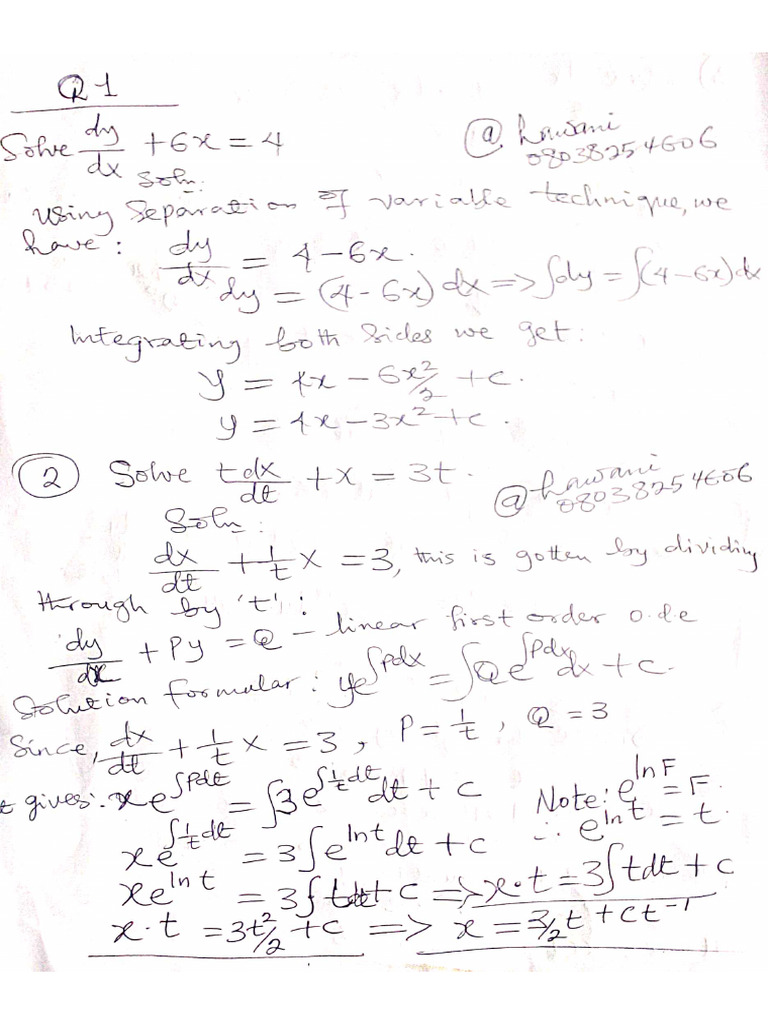 Q1
Solve dy/dx + 6x = 4
@ Lawani
08038254606
Soln:
Using Separation of variable technique, we
have: dy/dx = 4 - 6x.
dy = (4 - 6x) dx => ∫dy = ∫(4 - 6x) dx
Integrating both sides we get:
y = 4x - 6x²/2 + c.
y = 4x - 3x² + c.
(2) Solve t dx/dt + x = 3t.
@ Lawani
08038254606
Soln:
dx/dt + 1/t x = 3, this is gotten by dividing
through by 't':
dy/dx + Py = Q - linear first order o.d.e
Solution formular: ye^∫pdx = ∫Qe^∫pdx dx + c.
Since, dx/dt + 1/t x = 3, P = 1/t, Q = 3
t gives: xe^∫pdt = ∫3e^∫1/t dt dt + c
Note: e^lnF = F.
∴ e^ln t = t.
xe^∫1/t dt = 3∫e^ln t dt + c
xe^ln t = 3∫tdt + c => x·t = 3∫tdt + c
x·t = 3t²/2 + c => x = 3/2 t + ct^-1